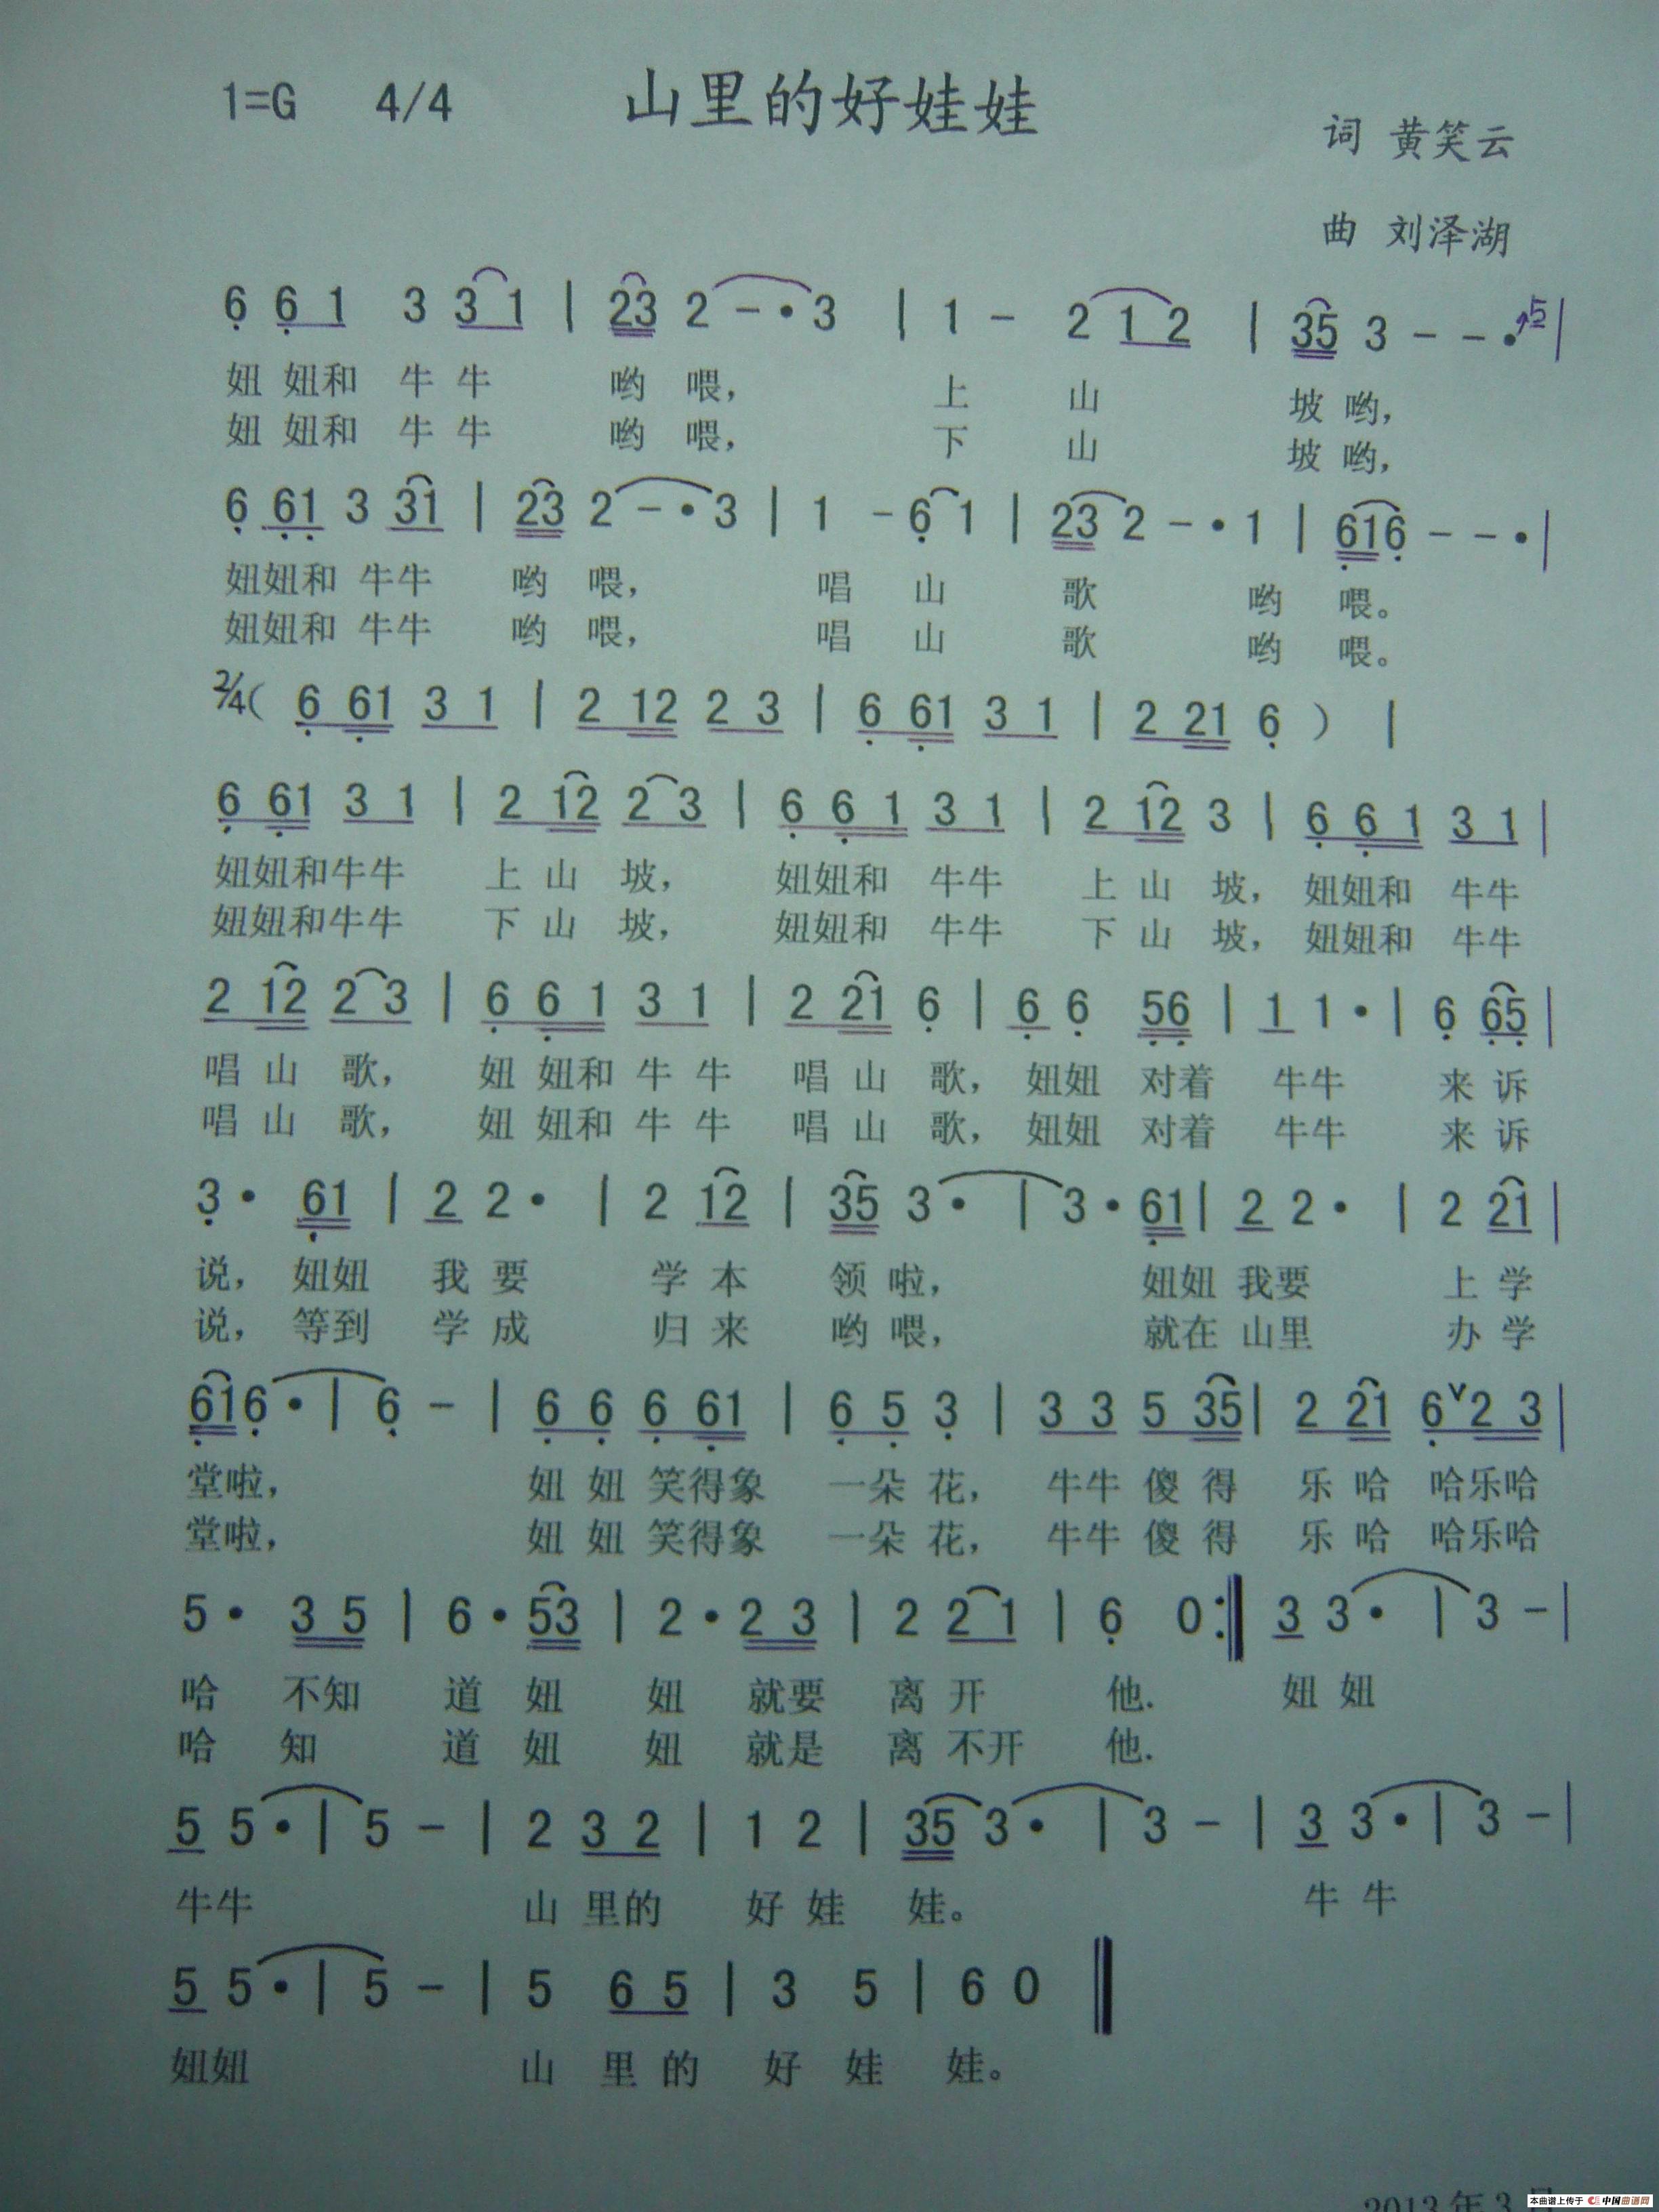 1=G 4/4 山里的好娃娃
词 黄笑云
曲 刘泽湖
6 6 1 3 3 1 | 23 2 - · 3 | 1 - 2 1 2 | 35 3 - - · 5 |
妞 妞和 牛 牛 哟 喂, 上 山 坡 哟,
妞 妞和 牛 牛 哟 喂, 下 山 坡 哟,
6 61 3 31 | 23 2 - · 3 | 1 - 6 1 | 23 2 - · 1 | 616 - - · |
妞妞和 牛牛 哟 喂, 唱 山 歌 哟 喂。
妞妞和 牛牛 哟 喂, 唱 山 歌 哟 喂。
2/4( 6 61 3 1 | 2 12 2 3 | 6 61 3 1 | 2 21 6 ) |
6 61 3 1 | 2 12 2 3 | 6 6 1 3 1 | 2 12 3 | 6 6 1 3 1 |
妞妞和牛牛 上 山 坡, 妞妞和 牛牛 上 山 坡, 妞妞和 牛牛
妞妞和牛牛 下 山 坡, 妞妞和 牛牛 下 山 坡, 妞妞和 牛牛
2 12 2 3 | 6 6 1 3 1 | 2 21 6 | 6 6 56 | 1 1 · | 6 65 |
唱 山 歌, 妞 妞和 牛 牛 唱 山 歌, 妞妞 对着 牛牛 来 诉
唱 山 歌, 妞 妞和 牛 牛 唱 山 歌, 妞妞 对着 牛牛 来 诉
3 · 61 | 2 2 · | 2 12 | 35 3 · | 3 · 61 | 2 2 · | 2 21 |
说, 妞妞 我 要 学 本 领 啦, 妞妞 我要 上 学
说, 等到 学 成 归 来 哟 喂, 就在 山里 办 学
616 · | 6 - | 6 6 6 61 | 6 5 3 | 3 3 5 35 | 2 21 6 ∨ 2 3 |
堂啦, 妞 妞 笑得象 一朵 花, 牛牛 傻 得 乐 哈 哈乐哈
堂啦, 妞 妞 笑得象 一朵 花, 牛牛 傻 得 乐 哈 哈乐哈
5 · 3 5 | 6 · 53 | 2 · 2 3 | 2 2 1 | 6 0 :‖ 3 3 · | 3 - |
哈 不知 道 妞 妞 就要 离 开 他. 妞 妞
哈 知 道 妞 妞 就是 离 不开 他.
5 5 · | 5 - | 2 3 2 | 1 2 | 35 3 · | 3 - | 3 3 · | 3 - |
牛牛 山 里的 好 娃 娃。 牛 牛
5 5 · | 5 - | 5 6 5 | 3 5 | 6 0 ‖
妞妞 山 里 的 好 娃 娃。
2013年3月
本曲谱上传于 中国曲谱网